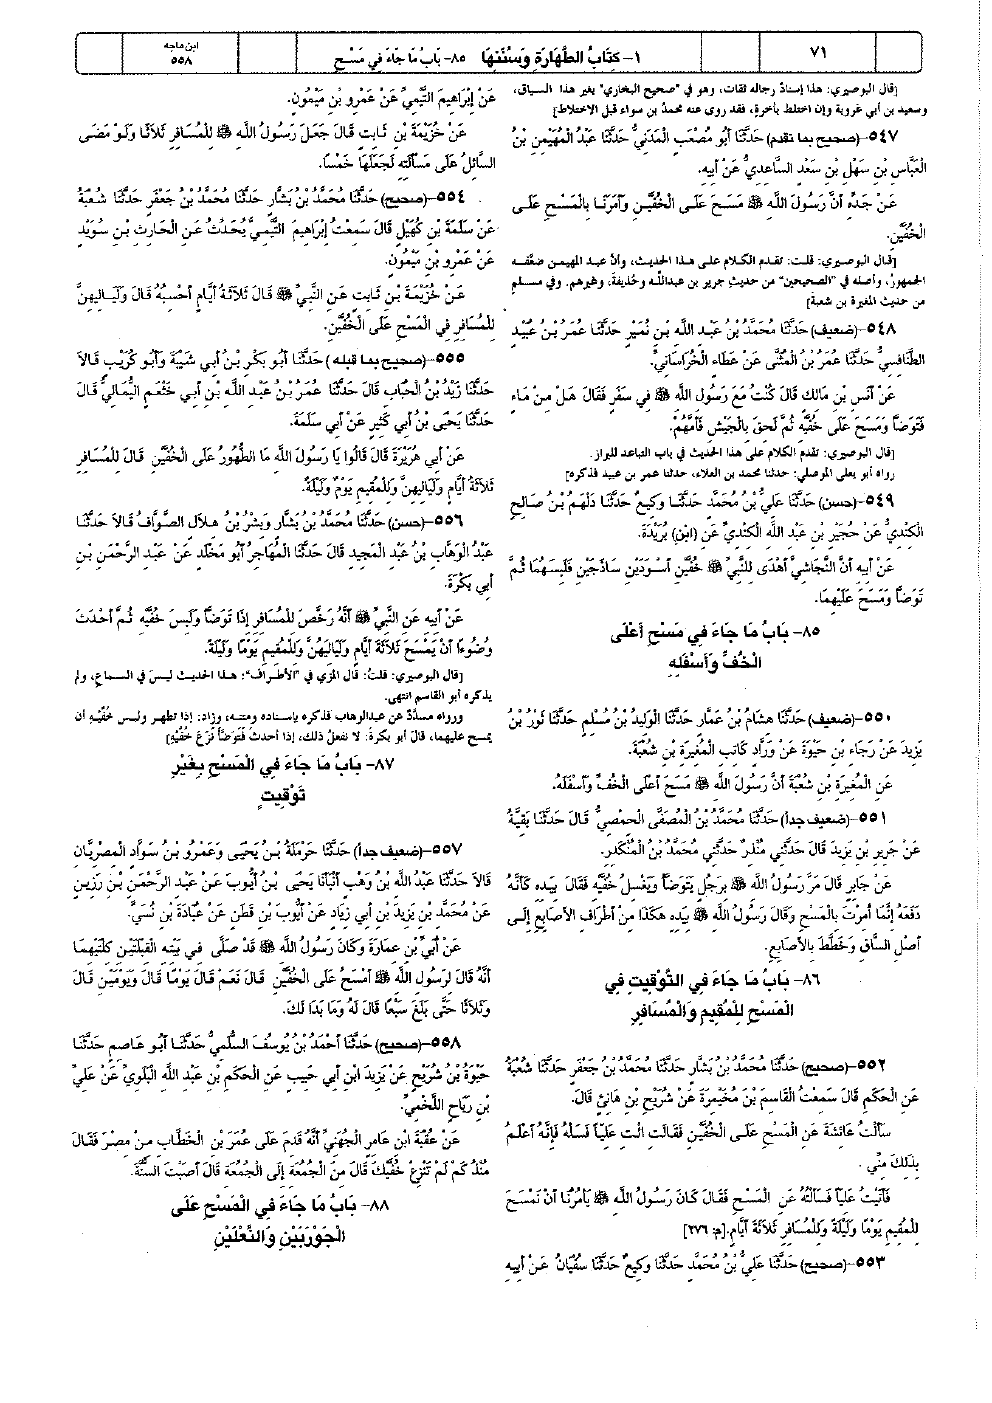 ٧١
١- كِتَابُ الطَّهَارَةِ وَسُنَنِهَا
٨٥- بَابُ مَا جَاءَ فِي مَسْحِ
ابن ماجه
٥٥٨
[قال البوصيري: هذا إسنادٌ رجاله ثقات، وهو في "صحيح البخاري" بغير هذا السياق،
وسعيد بن أبي عروبة وإن اختلط بأخرة، فقد روى عنه محمدُ بن سواء قبل الاختلاط]
٥٤٧-(صحيح بما تقدم) حَدَّثَنَا أَبُو مُصْعَبٍ الْمَدَنِيُّ حَدَّثَنَا عَبْدُ الْمُهَيْمِنِ بْنُ
الْعَبَّاسِ بْنِ سَهْلِ بْنِ سَعْدٍ السَّاعِدِيُّ عَنْ أَبِيهِ.
عَنْ جَدِّهِ أَنَّ رَسُولَ اللَّهِ ﷺ مَسَحَ عَلَى الْخُفَّيْنِ وَأَمَرَنَا بِالْمَسْحِ عَلَى
الْخُفَّيْنِ.
[قال البوصيري: قلت: تقدم الكلام على هذا الحديث، وأنَّ عبد المهيمن ضعَّفه
الجمهورُ، وأصله في "الصحيحين" من حديثِ جرير بن عبدالله وحُذيفة، وغيرهم. وفي مسلمٍ
من حديث المغيرة بن شعبة]
٥٤٨-(ضعيف) حَدَّثَنَا مُحَمَّدُ بْنُ عَبْدِ اللَّهِ بْنِ نُمَيْرٍ حَدَّثَنَا عُمَرُ بْنُ عُبَيْدٍ
الطَّنَافِسِيُّ حَدَّثَنَا عُمَرُ بْنُ الْمُثَنَّى عَنْ عَطَاءٍ الْخُرَاسَانِيِّ.
عَنْ أَنَسِ بْنِ مَالِكٍ قَالَ كُنْتُ مَعَ رَسُولِ اللَّهِ ﷺ فِي سَفَرٍ فَقَالَ هَلْ مِنْ مَاءٍ
فَتَوَضَّأَ وَمَسَحَ عَلَى خُفَّيْهِ ثُمَّ لَحِقَ بِالْجَيْشِ فَأَمَّهُمْ.
[قال البوصيري: تقدم الكلام على هذا الحديث في باب التباعد للبراز.
رواه أبو يعلى الموصلي: حدثنا محمد بن العلاء، حدثنا عمر بن عبيد فذكره]
٥٤٩-(حسن) حَدَّثَنَا عَلِيُّ بْنُ مُحَمَّدٍ حَدَّثَنَا وَكِيعٌ حَدَّثَنَا دَلْهَمُ بْنُ صَالِحٍ
الْكِنْدِيُّ عَنْ حُجَيْرِ بْنِ عَبْدِ اللَّهِ الْكِنْدِيِّ عَنِ (ابْنِ) بُرَيْدَةَ.
عَنْ أَبِيهِ أَنَّ النَّجَاشِيَّ أَهْدَى لِلنَّبِيِّ ﷺ خُفَّيْنِ أَسْوَدَيْنِ سَاذَجَيْنِ فَلَبِسَهُمَا ثُمَّ
تَوَضَّأَ وَمَسَحَ عَلَيْهِمَا.
٨٥- بَابُ مَا جَاءَ فِي مَسْحِ أَعْلَى
الْخُفِّ وَأَسْفَلِهِ
٥٥٠-(ضعيف) حَدَّثَنَا هِشَامُ بْنُ عَمَّارٍ حَدَّثَنَا الْوَلِيدُ بْنُ مُسْلِمٍ حَدَّثَنَا ثَوْرُ بْنُ
يَزِيدَ عَنْ رَجَاءِ بْنِ حَيْوَةَ عَنْ وَرَّادٍ كَاتِبِ الْمُغِيرَةِ بْنِ شُعْبَةَ.
عَنِ الْمُغِيرَةِ بْنِ شُعْبَةَ أَنَّ رَسُولَ اللَّهِ ﷺ مَسَحَ أَعْلَى الْخُفِّ وَأَسْفَلَهُ.
٥٥١-(ضعيف جداً) حَدَّثَنَا مُحَمَّدُ بْنُ الْمُصَفَّى الْحِمْصِيُّ قَالَ حَدَّثَنَا بَقِيَّةُ
عَنْ جَرِيرِ بْنِ يَزِيدَ قَالَ حَدَّثَنِي مُنْذِرٌ حَدَّثَنِي مُحَمَّدُ بْنُ الْمُنْكَدِرِ.
عَنْ جَابِرٍ قَالَ مَرَّ رَسُولُ اللَّهِ ﷺ بِرَجُلٍ يَتَوَضَّأُ وَيَغْسِلُ خُفَّيْهِ فَقَالَ بِيَدِهِ كَأَنَّهُ
دَفَعَهُ إِنَّمَا أُمِرْتَ بِالْمَسْحِ وَقَالَ رَسُولُ اللَّهِ ﷺ بِيَدِهِ هَكَذَا مِنْ أَطْرَافِ الأَصَابِعِ إِلَى
أَصْلِ السَّاقِ وَخَطَّطَ بِالأَصَابِعِ.
٨٦- بَابُ مَا جَاءَ فِي التَّوْقِيتِ فِي
الْمَسْحِ لِلْمُقِيمِ وَالْمُسَافِرِ
٥٥٢-(صحيح) حَدَّثَنَا مُحَمَّدُ بْنُ بَشَّارٍ حَدَّثَنَا مُحَمَّدُ بْنُ جَعْفَرٍ حَدَّثَنَا شُعْبَةُ
عَنِ الْحَكَمِ قَالَ سَمِعْتُ الْقَاسِمَ بْنَ مُخَيْمِرَةَ عَنْ شُرَيْحِ بْنِ هَانِئٍ قَالَ.
سَأَلْتُ عَائِشَةَ عَنِ الْمَسْحِ عَلَى الْخُفَّيْنِ فَقَالَتِ ائْتِ عَلِيًّا فَسَلْهُ فَإِنَّهُ أَعْلَمُ
بِذَلِكَ مِنِّي.
فَأَتَيْتُ عَلِيًّا فَسَأَلْتُهُ عَنِ الْمَسْحِ فَقَالَ كَانَ رَسُولُ اللَّهِ ﷺ يَأْمُرُنَا أَنْ نَمْسَحَ
لِلْمُقِيمِ يَوْمًا وَلَيْلَةً وَلِلْمُسَافِرِ ثَلاثَةَ أَيَّامٍ.[م: ٢٧٦]
٥٥٣-(صحيح) حَدَّثَنَا عَلِيُّ بْنُ مُحَمَّدٍ حَدَّثَنَا وَكِيعٌ حَدَّثَنَا سُفْيَانُ عَنْ أَبِيهِ
عَنْ إِبْرَاهِيمَ التَّيْمِيِّ عَنْ عَمْرِو بْنِ مَيْمُونٍ.
عَنْ خُزَيْمَةَ بْنِ ثَابِتٍ قَالَ جَعَلَ رَسُولُ اللَّهِ ﷺ لِلْمُسَافِرِ ثَلاثًا وَلَوْ مَضَى
السَّائِلُ عَلَى مَسْأَلَتِهِ لَجَعَلَهَا خَمْسًا.
٥٥٤-(صحيح) حَدَّثَنَا مُحَمَّدُ بْنُ بَشَّارٍ حَدَّثَنَا مُحَمَّدُ بْنُ جَعْفَرٍ حَدَّثَنَا شُعْبَةُ
عَنْ سَلَمَةَ بْنِ كُهَيْلٍ قَالَ سَمِعْتُ إِبْرَاهِيمَ التَّيْمِيَّ يُحَدِّثُ عَنِ الْحَارِثِ بْنِ سُوَيْدٍ
عَنْ عَمْرِو بْنِ مَيْمُونٍ.
عَنْ خُزَيْمَةَ بْنِ ثَابِتٍ عَنِ النَّبِيِّ ﷺ قَالَ ثَلاثَةُ أَيَّامٍ أَحْسِبُهُ قَالَ وَلَيَالِيهِنَّ
لِلْمُسَافِرِ فِي الْمَسْحِ عَلَى الْخُفَّيْنِ.
٥٥٥-(صحيح بما قبله) حَدَّثَنَا أَبُو بَكْرِ بْنُ أَبِي شَيْبَةَ وَأَبُو كُرَيْبٍ قَالا
حَدَّثَنَا زَيْدُ بْنُ الْحُبَابِ قَالَ حَدَّثَنَا عُمَرُ بْنُ عَبْدِ اللَّهِ بْنِ أَبِي خَثْعَمٍ الثُّمَالِيُّ قَالَ
حَدَّثَنَا يَحْيَى بْنُ أَبِي كَثِيرٍ عَنْ أَبِي سَلَمَةَ.
عَنْ أَبِي هُرَيْرَةَ قَالَ قَالُوا يَا رَسُولَ اللَّهِ مَا الطُّهُورُ عَلَى الْخُفَّيْنِ قَالَ لِلْمُسَافِرِ
ثَلاثَةُ أَيَّامٍ وَلَيَالِيهِنَّ وَلِلْمُقِيمِ يَوْمٌ وَلَيْلَةٌ.
٥٥٦-(حسن) حَدَّثَنَا مُحَمَّدُ بْنُ بَشَّارٍ وَبِشْرُ بْنُ هِلالٍ الصَّوَّافُ قَالا حَدَّثَنَا
عَبْدُ الْوَهَّابِ بْنُ عَبْدِ الْمَجِيدِ قَالَ حَدَّثَنَا الْمُهَاجِرُ أَبُو مَخْلَدٍ عَنْ عَبْدِ الرَّحْمَنِ بْنِ
أَبِي بَكْرَةَ.
عَنْ أَبِيهِ عَنِ النَّبِيِّ ﷺ أَنَّهُ رَخَّصَ لِلْمُسَافِرِ إِذَا تَوَضَّأَ وَلَبِسَ خُفَّيْهِ ثُمَّ أَحْدَثَ
وُضُوءًا أَنْ يَمْسَحَ ثَلاثَةَ أَيَّامٍ وَلَيَالِيَهُنَّ وَلِلْمُقِيمِ يَوْمًا وَلَيْلَةً.
[قال البوصيري: قلتُ: قال المزِّي في "الأطراف": هذا الحديث ليسَ في السماع، ولم
يذكره أبو القاسم انتهى.
ورواه مسدَّدٌ عن عبدالوهاب فذكره بإسناده ومتنه، وزاد: إذا تطهر ولبس خُفَّيْهِ أن
يمسح عليهما، قال أبو بكرةَ: لا نفعلُ ذلك، إذا أحدثَ فَتَوَضَّأَ نَزَعَ خُفَّيْهِ]
٨٧- بَابُ مَا جَاءَ فِي الْمَسْحِ بِغَيْرِ
تَوْقِيتٍ
٥٥٧-(ضعيف جداً) حَدَّثَنَا حَرْمَلَةُ بْنُ يَحْيَى وَعَمْرُو بْنُ سَوَّادٍ الْمِصْرِيَّانِ
قَالا حَدَّثَنَا عَبْدُ اللَّهِ بْنُ وَهْبٍ أَنْبَأَنَا يَحْيَى بْنُ أَيُّوبَ عَنْ عَبْدِ الرَّحْمَنِ بْنِ رَزِينٍ
عَنْ مُحَمَّدِ بْنِ يَزِيدَ بْنِ أَبِي زِيَادٍ عَنْ أَيُّوبَ بْنِ قَطَنٍ عَنْ عُبَادَةَ بْنِ نُسَيٍّ.
عَنْ أُبَيِّ بْنِ عِمَارَةَ وَكَانَ رَسُولُ اللَّهِ ﷺ قَدْ صَلَّى فِي بَيْتِهِ الْقِبْلَتَيْنِ كِلْتَيْهِمَا
أَنَّهُ قَالَ لِرَسُولِ اللَّهِ ﷺ أَمْسَحُ عَلَى الْخُفَّيْنِ قَالَ نَعَمْ قَالَ يَوْمًا قَالَ وَيَوْمَيْنِ قَالَ
وَثَلاثًا حَتَّى بَلَغَ سَبْعًا قَالَ لَهُ وَمَا بَدَا لَكَ.
٥٥٨-(صحيح) حَدَّثَنَا أَحْمَدُ بْنُ يُوسُفَ السُّلَمِيُّ حَدَّثَنَا أَبُو عَاصِمٍ حَدَّثَنَا
حَيْوَةُ بْنُ شُرَيْحٍ عَنْ يَزِيدَ ابْنِ أَبِي حَبِيبٍ عَنِ الْحَكَمِ بْنِ عَبْدِ اللَّهِ الْبَلَوِيِّ عَنْ عَلِيِّ
بْنِ رَبَاحٍ اللَّخْمِيِّ.
عَنْ عُقْبَةَ ابْنِ عَامِرٍ الْجُهَنِيِّ أَنَّهُ قَدِمَ عَلَى عُمَرَ بْنِ الْخَطَّابِ مِنْ مِصْرَ فَقَالَ
مُنْذُ كَمْ لَمْ تَنْزِعْ خُفَّيْكَ قَالَ مِنَ الْجُمُعَةِ إِلَى الْجُمُعَةِ قَالَ أَصَبْتَ السُّنَّةَ.
٨٨- بَابُ مَا جَاءَ فِي الْمَسْحِ عَلَى
الْجَوْرَبَيْنِ وَالنَّعْلَيْنِ